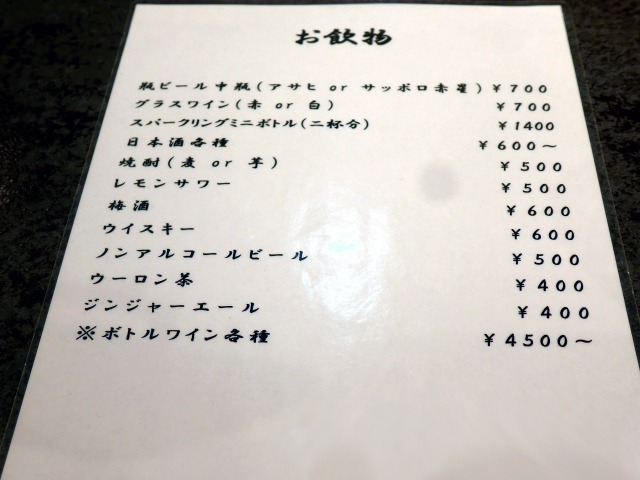 お飲物
瓶ビール中瓶(アサヒ or サッポロ赤星) ¥700
グラスワイン(赤 or 白) ¥700
スパークリングミニボトル(二杯分) ¥1400
日本酒各種 ¥600～
焼酎(麦 or 芋) ¥500
レモンサワー ¥500
梅酒 ¥600
ウイスキー ¥600
ノンアルコールビール ¥500
ウーロン茶 ¥400
ジンジャーエール ¥400
※ボトルワイン各種 ¥4500～